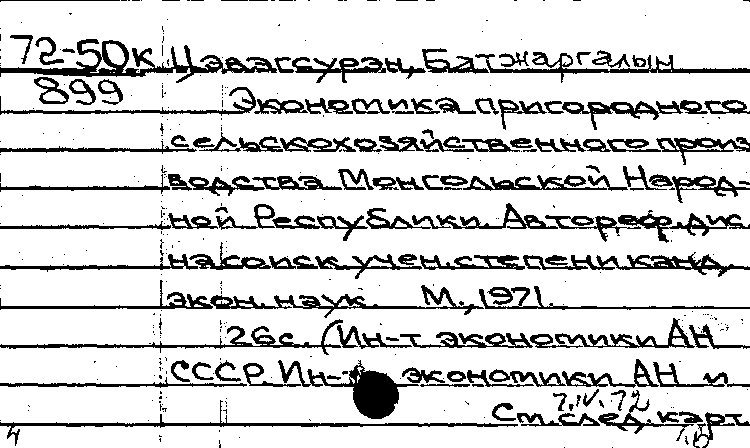 72-50к Цэвэгсурэн, Батжаргалын
899 Экономика пригородного
сельскохозяйственного произ
водства Монгольской Народ-
ной Республики. Автореф. дис.
на соиск. учен. степени канд.
экон. наук. М., 1971.
26с. (Ин-т экономики АН
СССР. Ин-т экономики АН и
7.IV.72
См. след. карт
4